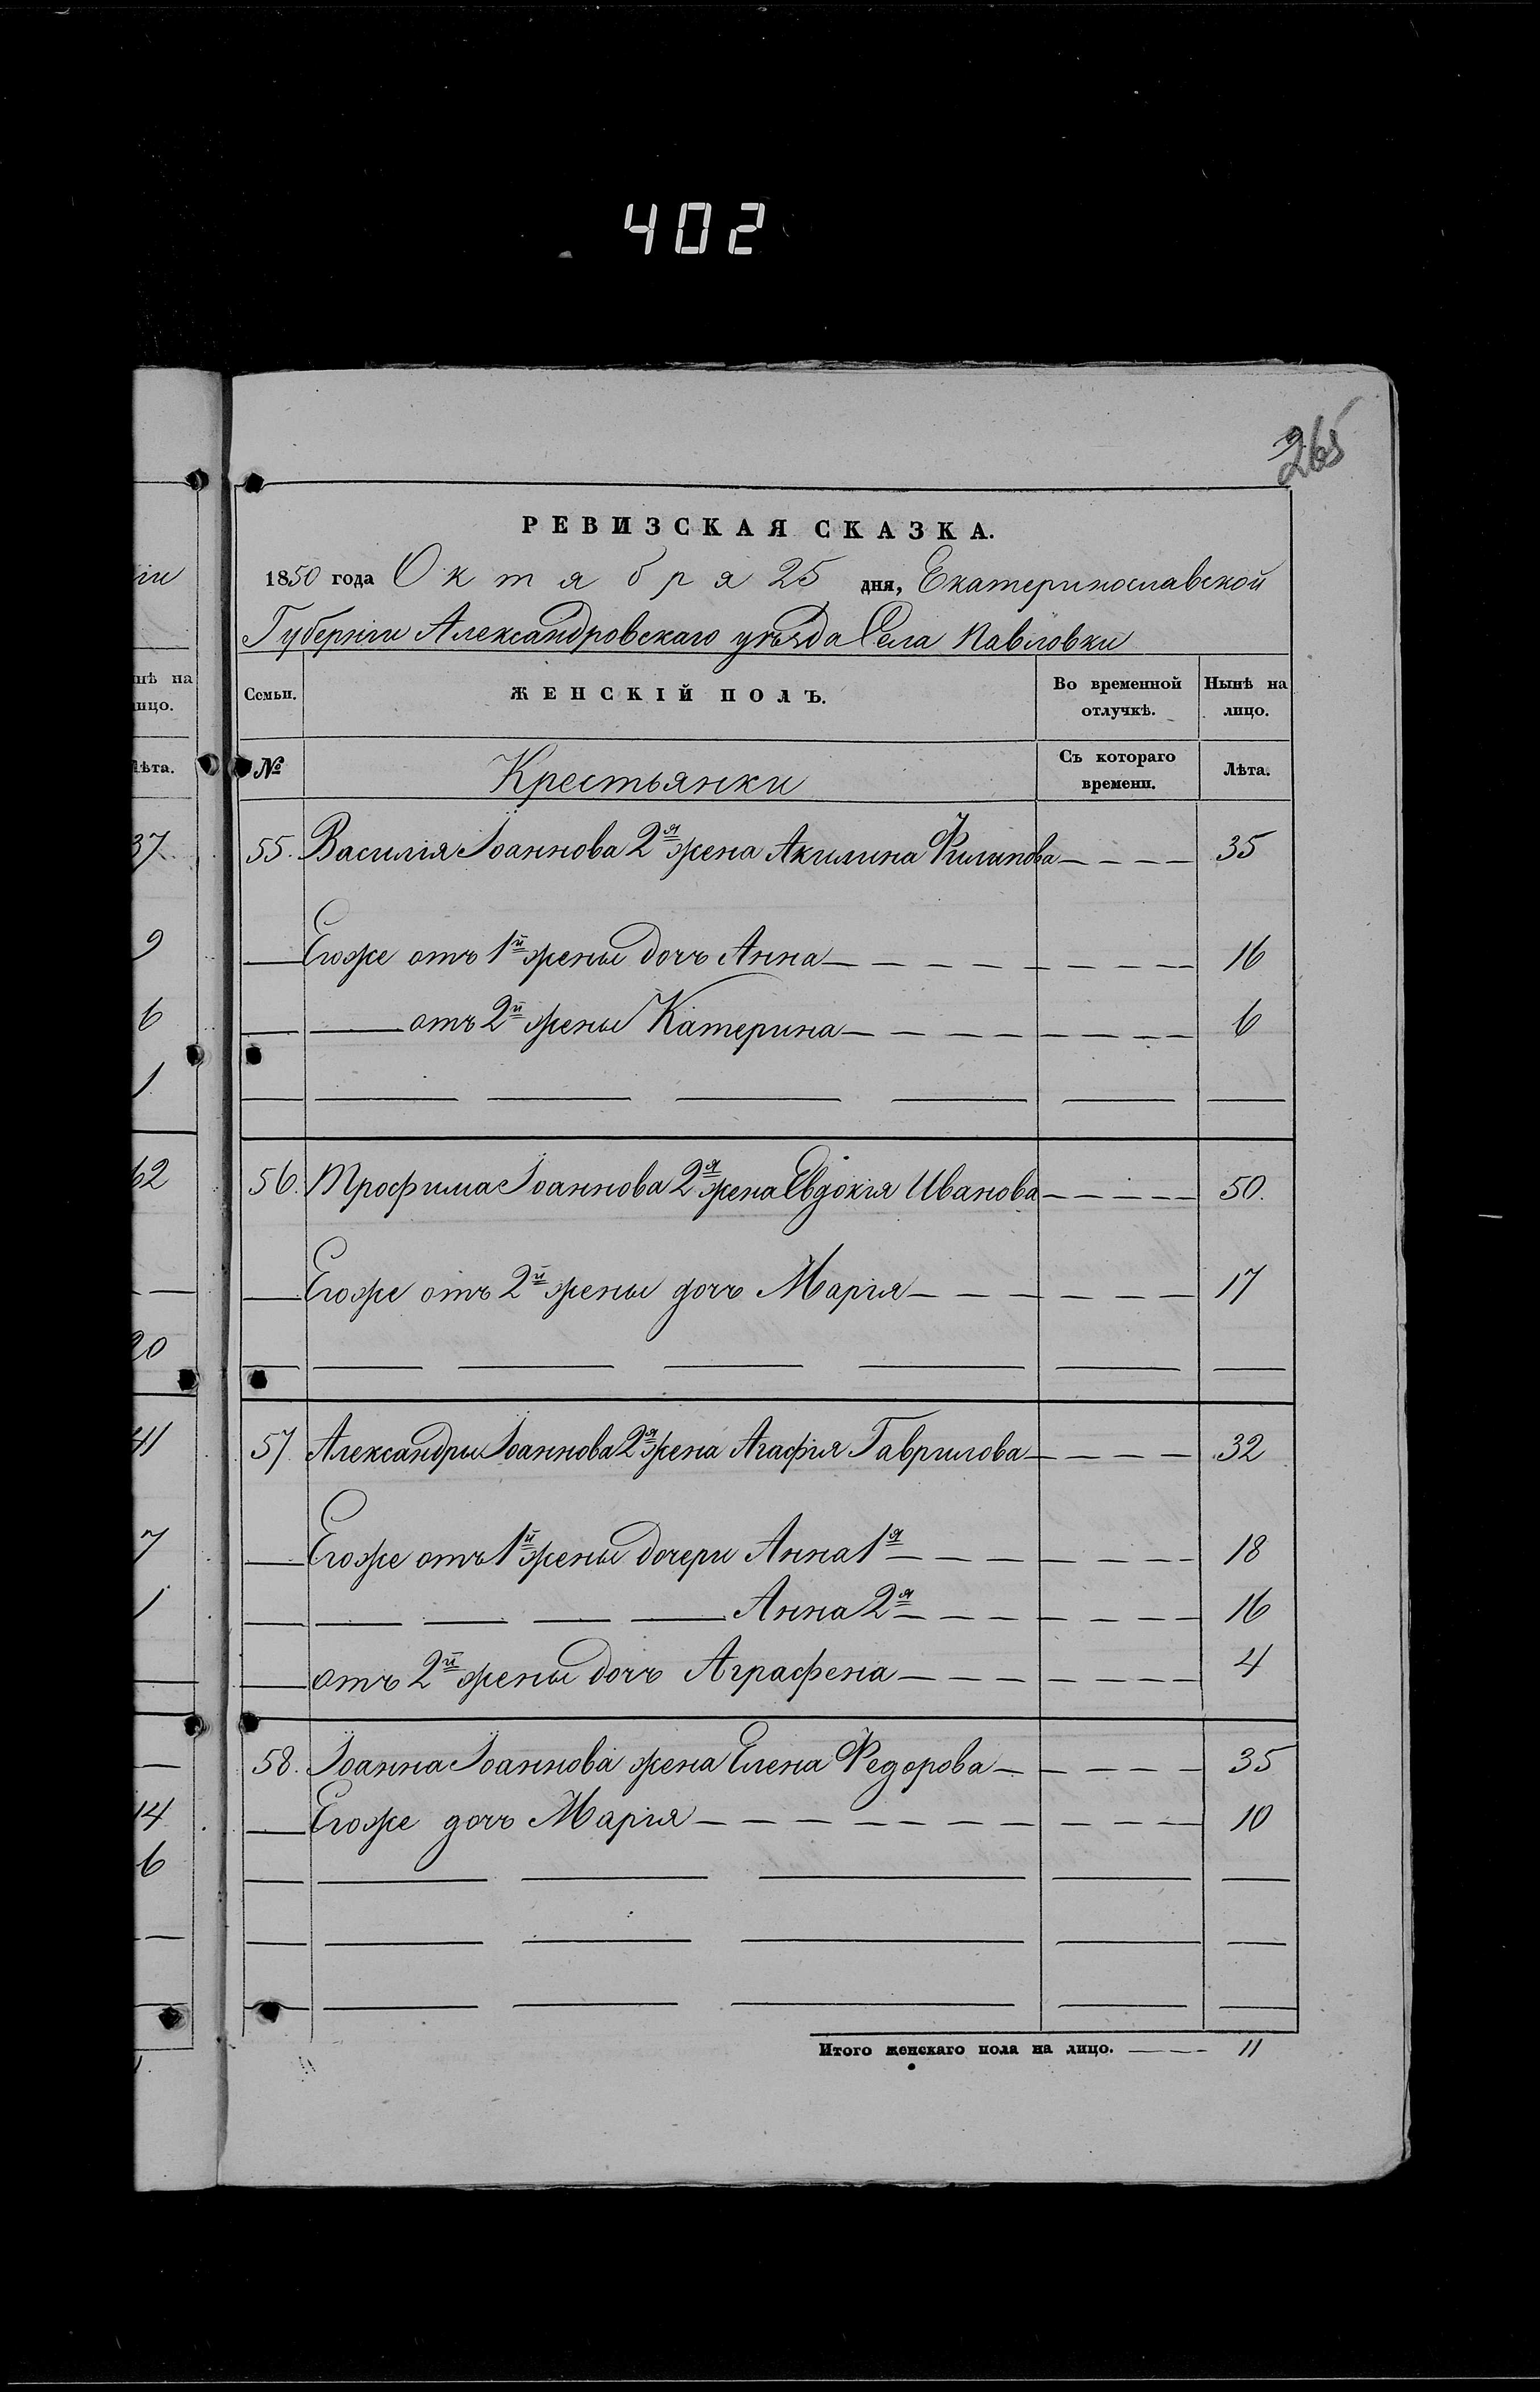 402
265
РЕВИЗСКАЯ СКАЗКА.
1850 года Октября 25 дня, Екатеринославской
Губерніи Александровскаго уѣзда Села Павловки
Семьи. ЖЕНСКІЙ ПОЛЪ. Во временной отлучкѣ. Нынѣ на лицо.
№ Крестьянки Съ котораго времени. Лѣта.
55. Василія Іоаннова 2я жена Акилина Филипова 35
Егоже отъ 1й жены дочь Анна 16
отъ 2й жены Катерина 6
56. Трофима Іоаннова 2я жена Евдокія Иванова 50.
Егоже отъ 2й жены дочь Марія 17
57 Александры Іоаннова 2я жена Агафія Гаврилова 32
Егоже отъ 1й жены дочери Анна 1я 18
Анна 2я 16
отъ 2й жены дочь Аграфена 4
58. Іоанна Іоаннова жена Елена Федорова 35
Егоже дочь Марія 10
Итого женскаго пола на лицо. 11
нѣ на
ицо.
ѣта.
37
9
6
1
62
20
41
7
1
14
6